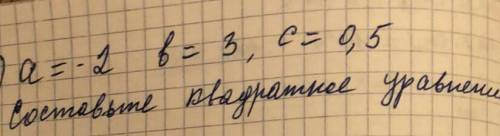 ) a = -2 в = 3, c = 0,5
Составьте квадратное уравнени